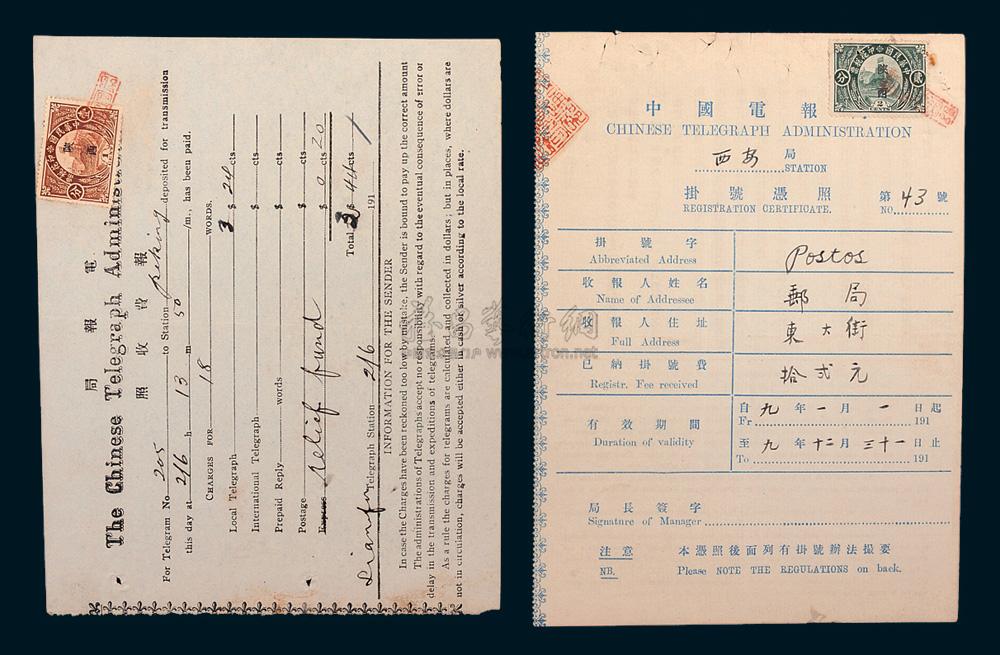 局報電
The Chinese Telegraph Administ
照收費報
For Telegram No. 205 deposited for transmission
this day at 2/6 h 13 m 50 to Station Peking /m, has been paid.
CHARGES FOR 18 WORDS.
Local Telegraph $ cts
International Telegraph $ cts
Prepaid Reply words $ cts
Postage $ cts
Express Relief fund $ 0 20 cts
Total $ cts
Sianfu Telegraph Station 2/6 191
INFORMATION FOR THE SENDER
In case the Charges have been reckoned too low by mistake, the Sender is bound to pay up the correct amount
The administrations of Telegraphs accept no responsibility with regard to the eventual consequence of error or
delay in the transmission and expeditions of telegrams.
As a rule the charges for telegrams are calculated and collected in dollars; but in places, where dollars are
not in circulation, charges will be accepted either in cash or silver according to the local rate.
陝西
陝西
貳 分
2
CENTS
中國電報
CHINESE TELEGRAPH ADMINISTRATION
西安 局
STATION
掛號憑照
REGISTRATION CERTIFICATE.
第 43 號
NO.
掛號字
Abbreviated Address
Postos
收報人姓名
Name of Addressee
郵局
收報人住址
Full Address
東大街
已納掛號費
Registr. Fee received
拾弍元
有效期間
Duration of validity
自九年一月一日起
Fr 191
至九年十二月三十一日止
To 191
局長簽字
Signature of Manager
注意 本憑照後面列有掛號辦法撮要
NB. Please NOTE THE REGULATIONS on back.